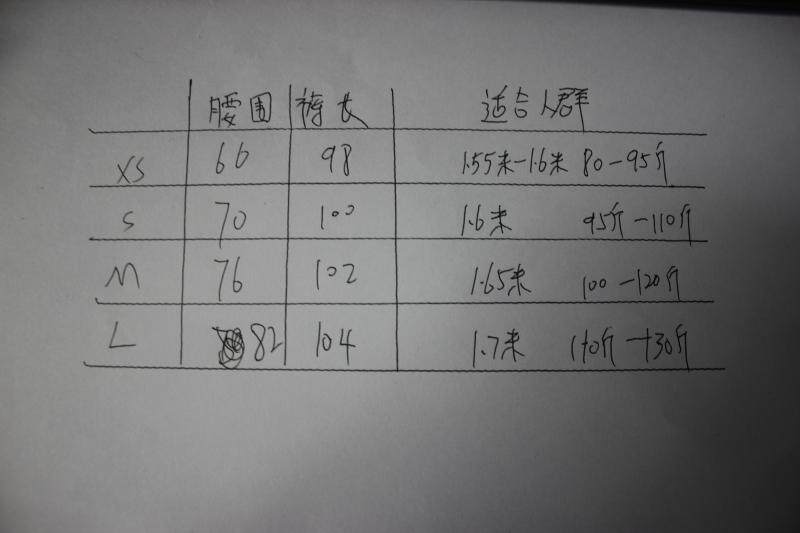 腰围 裤长 适合人群
XS 66 98 1.55米-1.6米 80-95斤
S 70 100 1.6米 95斤-110斤
M 76 102 1.65米 100-120斤
L 82 104 1.7米 110斤-130斤